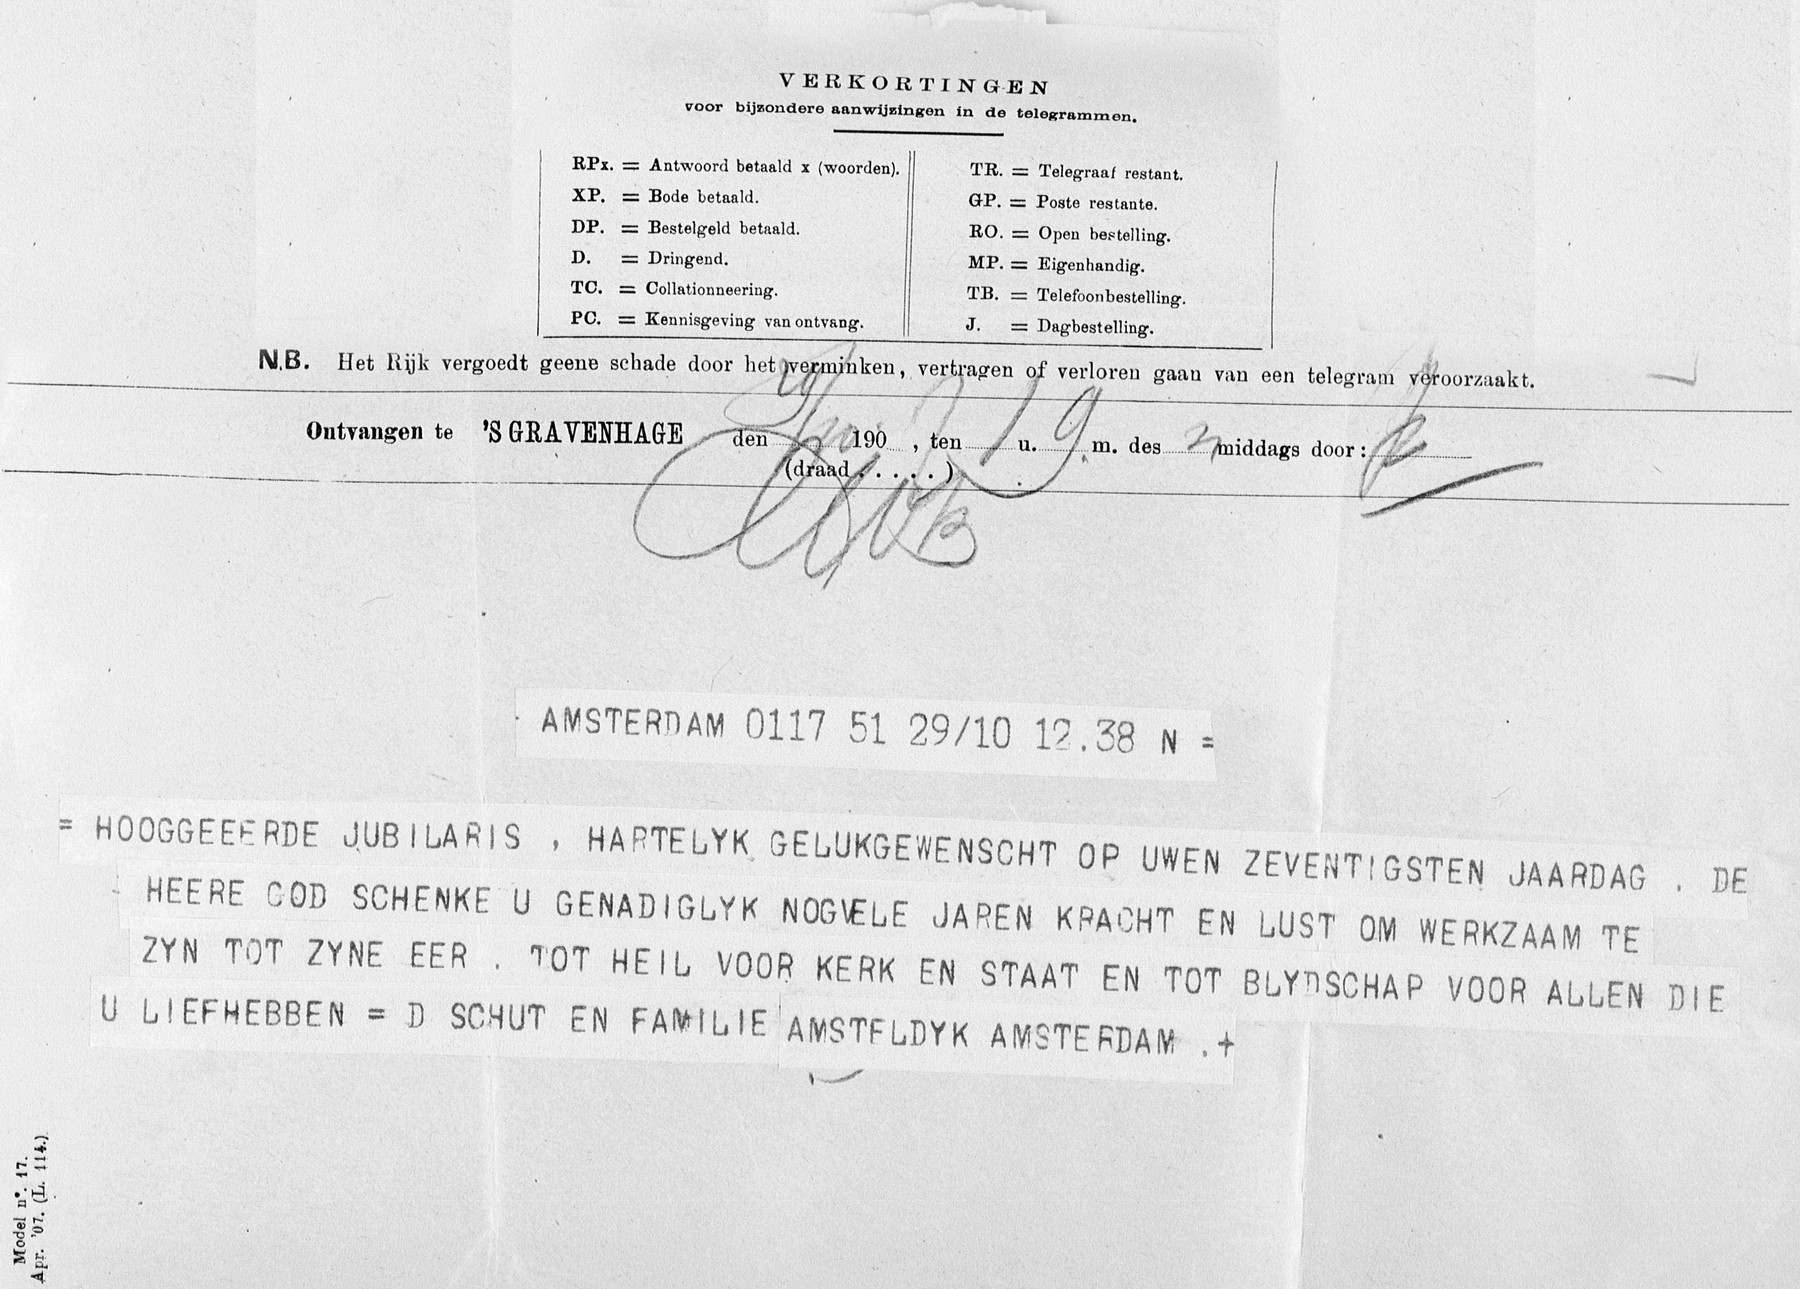 VERKORTINGEN
voor bijzondere aanwijzingen in de telegrammen.
RPx. = Antwoord betaald x (woorden).
XP. = Bode betaald.
DP. = Bestelgeld betaald.
D. = Dringend.
TC. = Collationneering.
PC. = Kennisgeving van ontvang.
TR. = Telegraaf restant.
GP. = Poste restante.
RO. = Open bestelling.
MP. = Eigenhandig.
TB. = Telefoonbestelling.
J. = Dagbestelling.
N.B. Het Rijk vergoedt geene schade door het verminken, vertragen of verloren gaan van een telegram veroorzaakt.
Ontvangen te 'S GRAVENHAGE den 190 , ten 1 u. 9 m. des n middags door:
(draad . . . . . )
AMSTERDAM 0117 51 29/10 12.38 N =
= HOOGGEEERDE JUBILARIS , HARTELYK GELUKGEWENSCHT OP UWEN ZEVENTIGSTEN JAARDAG . DE
HEERE GOD SCHENKE U GENADIGLYK NOGVELE JAREN KRACHT EN LUST OM WERKZAAM TE
ZYN TOT ZYNE EER . TOT HEIL VOOR KERK EN STAAT EN TOT BLYDSCHAP VOOR ALLEN DIE
U LIEFHEBBEN = D SCHUT EN FAMILIE AMSTELDYK AMSTERDAM . +
Model n°. 17.
Apr. '07. (L. 114.)